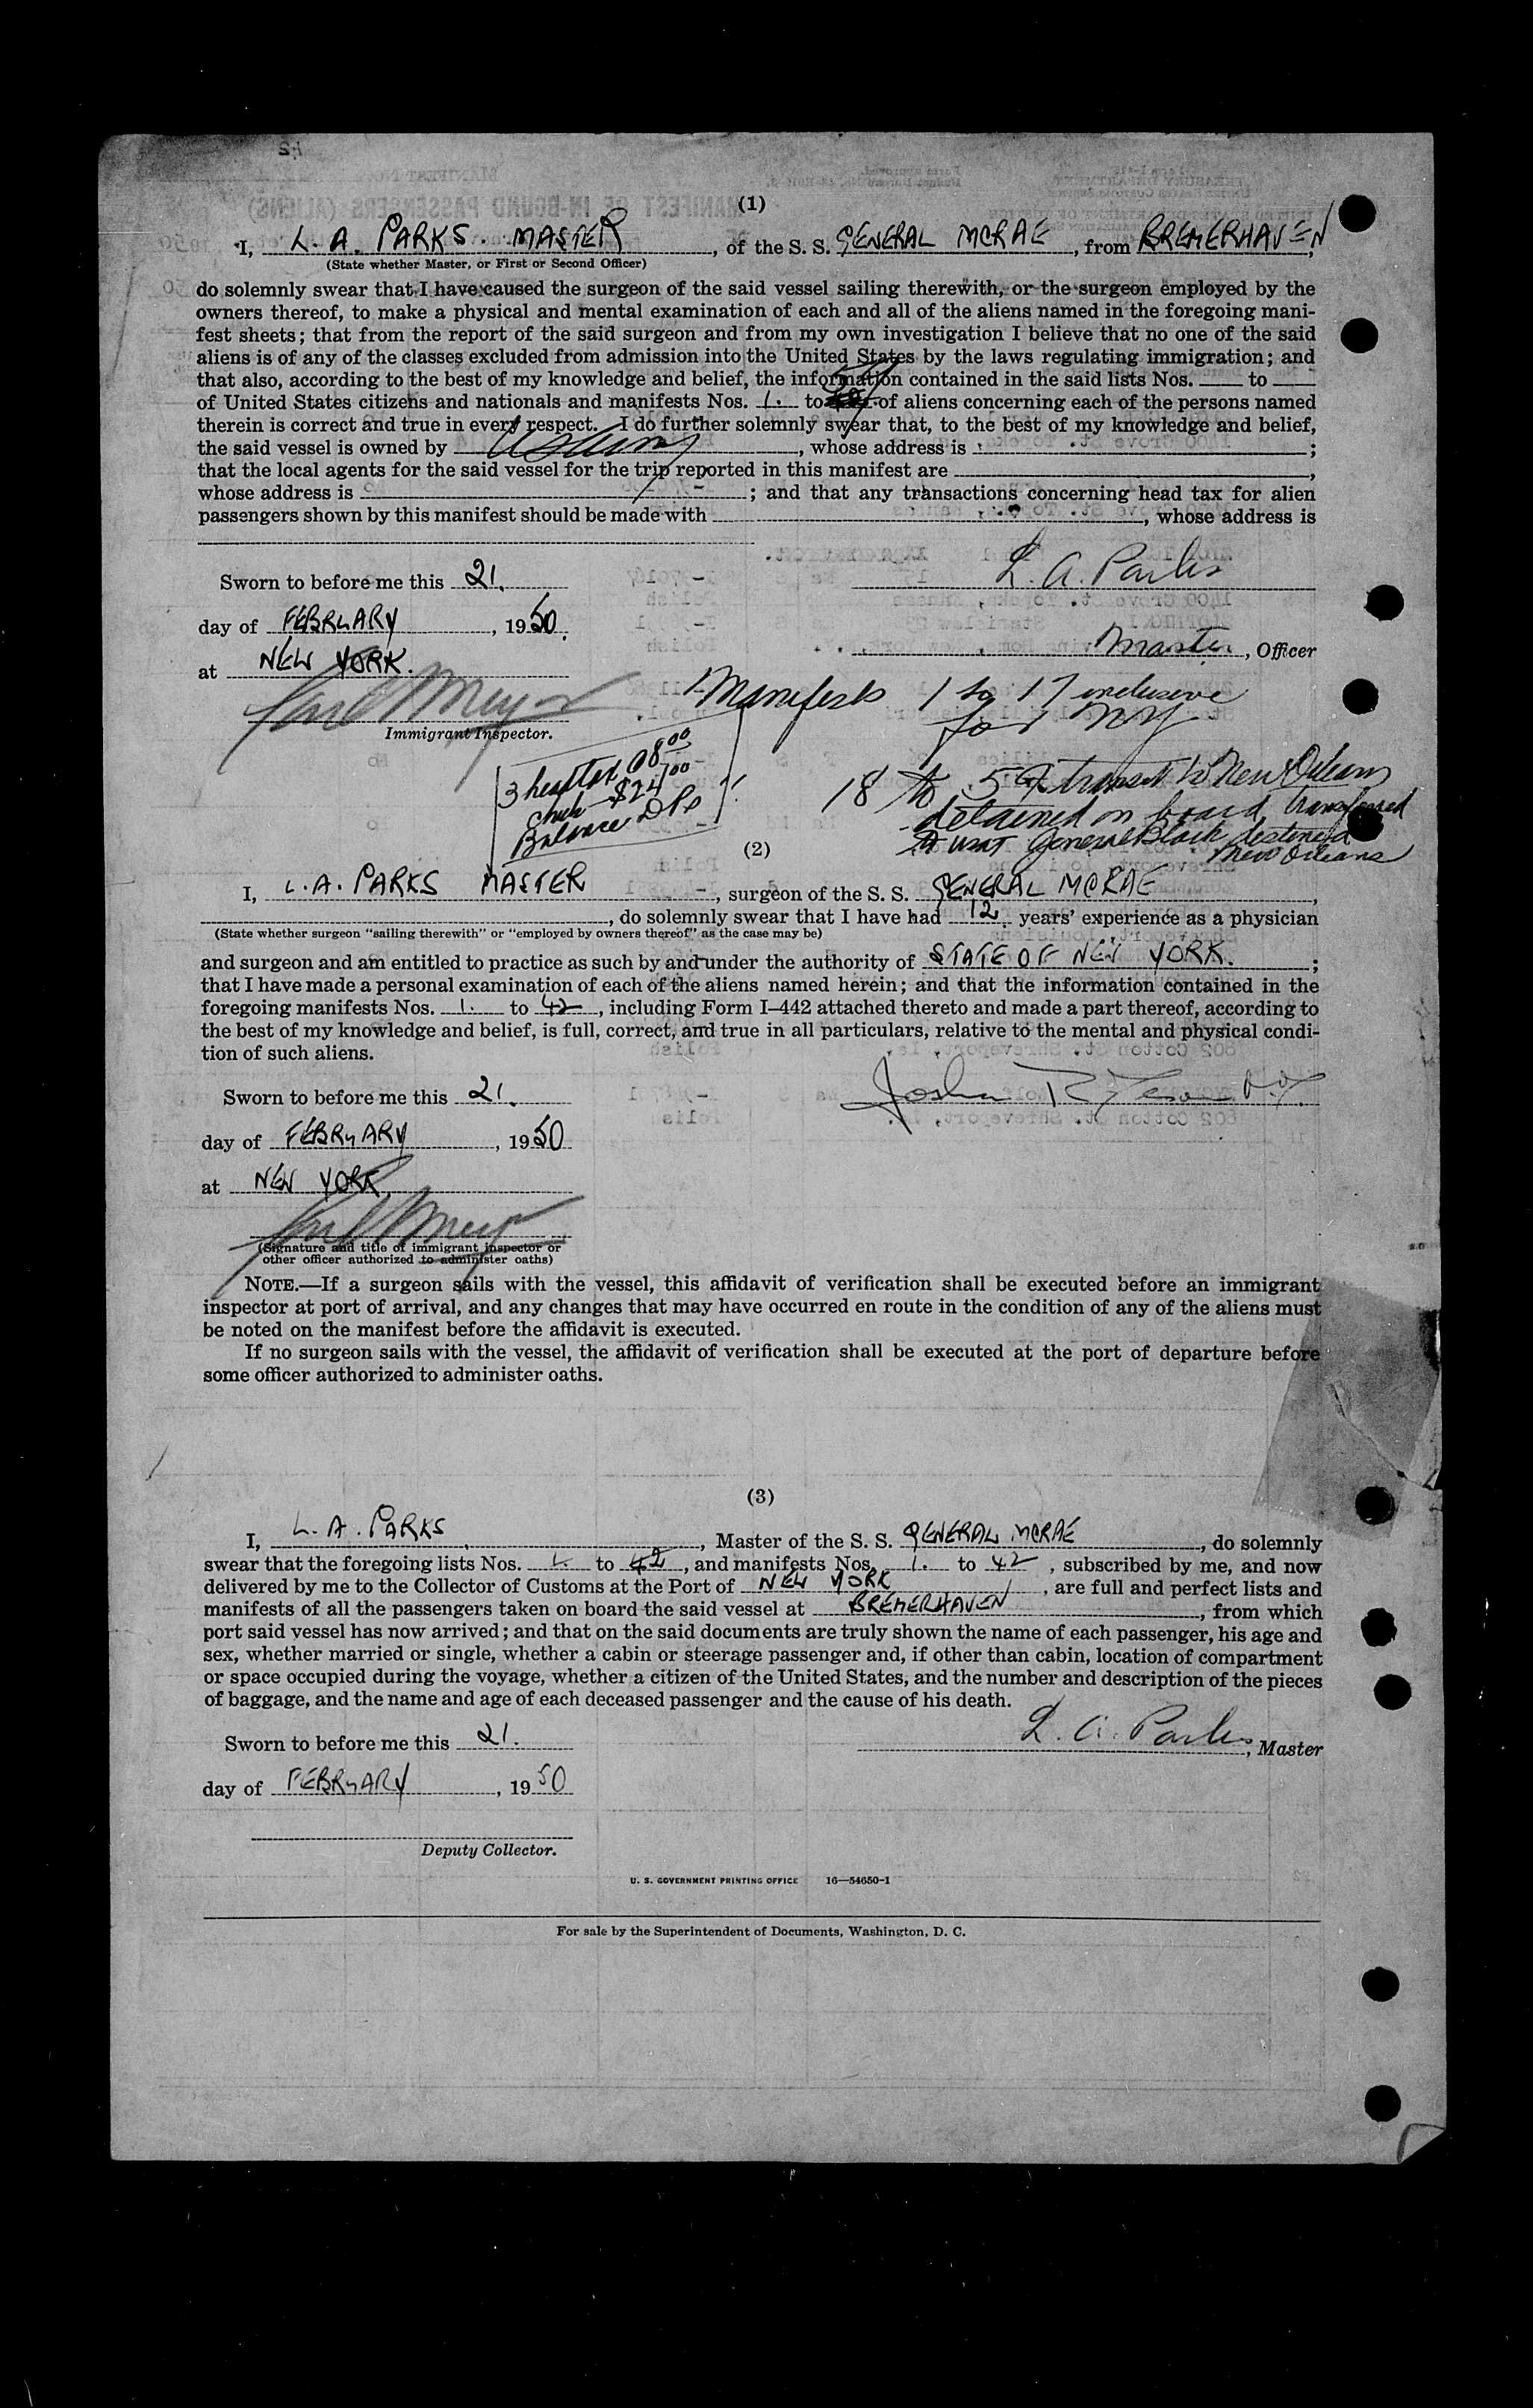 (1)
I, L. A. PARKS. MASTER, of the S. S. GENERAL MCRAE, from BREMERHAVEN,
(State whether Master, or First or Second Officer)
do solemnly swear that I have caused the surgeon of the said vessel sailing therewith, or the surgeon employed by the
owners thereof, to make a physical and mental examination of each and all of the aliens named in the foregoing mani-
fest sheets; that from the report of the said surgeon and from my own investigation I believe that no one of the said
aliens is of any of the classes excluded from admission into the United States by the laws regulating immigration; and
that also, according to the best of my knowledge and belief, the information contained in the said lists Nos. to
of United States citizens and nationals and manifests Nos. 1. to of aliens concerning each of the persons named
therein is correct and true in every respect. I do further solemnly swear that, to the best of my knowledge and belief,
the said vessel is owned by , whose address is ;
that the local agents for the said vessel for the trip reported in this manifest are ,
whose address is ; and that any transactions concerning head tax for alien
passengers shown by this manifest should be made with , whose address is
Sworn to before me this 21.
L. A. Parks
day of FEBRUARY, 1950.
Master, Officer
at NEW YORK.
Manifests 1 to 17 inclusive
for NY
Immigrant Inspector.
3 headtax 08 00
check $24 00
Balance DPs
18 to 59 transit to New Orleans
detained on board transferred
to USAT General Black destined
New Orleans
(2)
I, L. A. PARKS MASTER, surgeon of the S. S. GENERAL MCRAE,
, do solemnly swear that I have had 12 years' experience as a physician
(State whether surgeon "sailing therewith" or "employed by owners thereof" as the case may be)
and surgeon and am entitled to practice as such by and under the authority of STATE OF NEW YORK. ;
that I have made a personal examination of each of the aliens named herein; and that the information contained in the
foregoing manifests Nos. 1. to 42, including Form I–442 attached thereto and made a part thereof, according to
the best of my knowledge and belief, is full, correct, and true in all particulars, relative to the mental and physical condi-
tion of such aliens.
Sworn to before me this 21.
day of FEBRUARY, 1950
at NEW YORK
(Signature and title of immigrant inspector or
other officer authorized to administer oaths)
NOTE.—If a surgeon sails with the vessel, this affidavit of verification shall be executed before an immigrant
inspector at port of arrival, and any changes that may have occurred en route in the condition of any of the aliens must
be noted on the manifest before the affidavit is executed.
If no surgeon sails with the vessel, the affidavit of verification shall be executed at the port of departure before
some officer authorized to administer oaths.
(3)
I, L. A. PARKS, Master of the S. S. GENERAL MCRAE, do solemnly
swear that the foregoing lists Nos. 1. to 42, and manifests Nos. 1. to 42, subscribed by me, and now
delivered by me to the Collector of Customs at the Port of NEW YORK, are full and perfect lists and
manifests of all the passengers taken on board the said vessel at BREMERHAVEN, from which
port said vessel has now arrived; and that on the said documents are truly shown the name of each passenger, his age and
sex, whether married or single, whether a cabin or steerage passenger and, if other than cabin, location of compartment
or space occupied during the voyage, whether a citizen of the United States, and the number and description of the pieces
of baggage, and the name and age of each deceased passenger and the cause of his death.
Sworn to before me this 21.
L. A. Parks, Master
day of FEBRUARY, 1950
Deputy Collector.
U. S. GOVERNMENT PRINTING OFFICE 16—54650-1
For sale by the Superintendent of Documents, Washington, D. C.